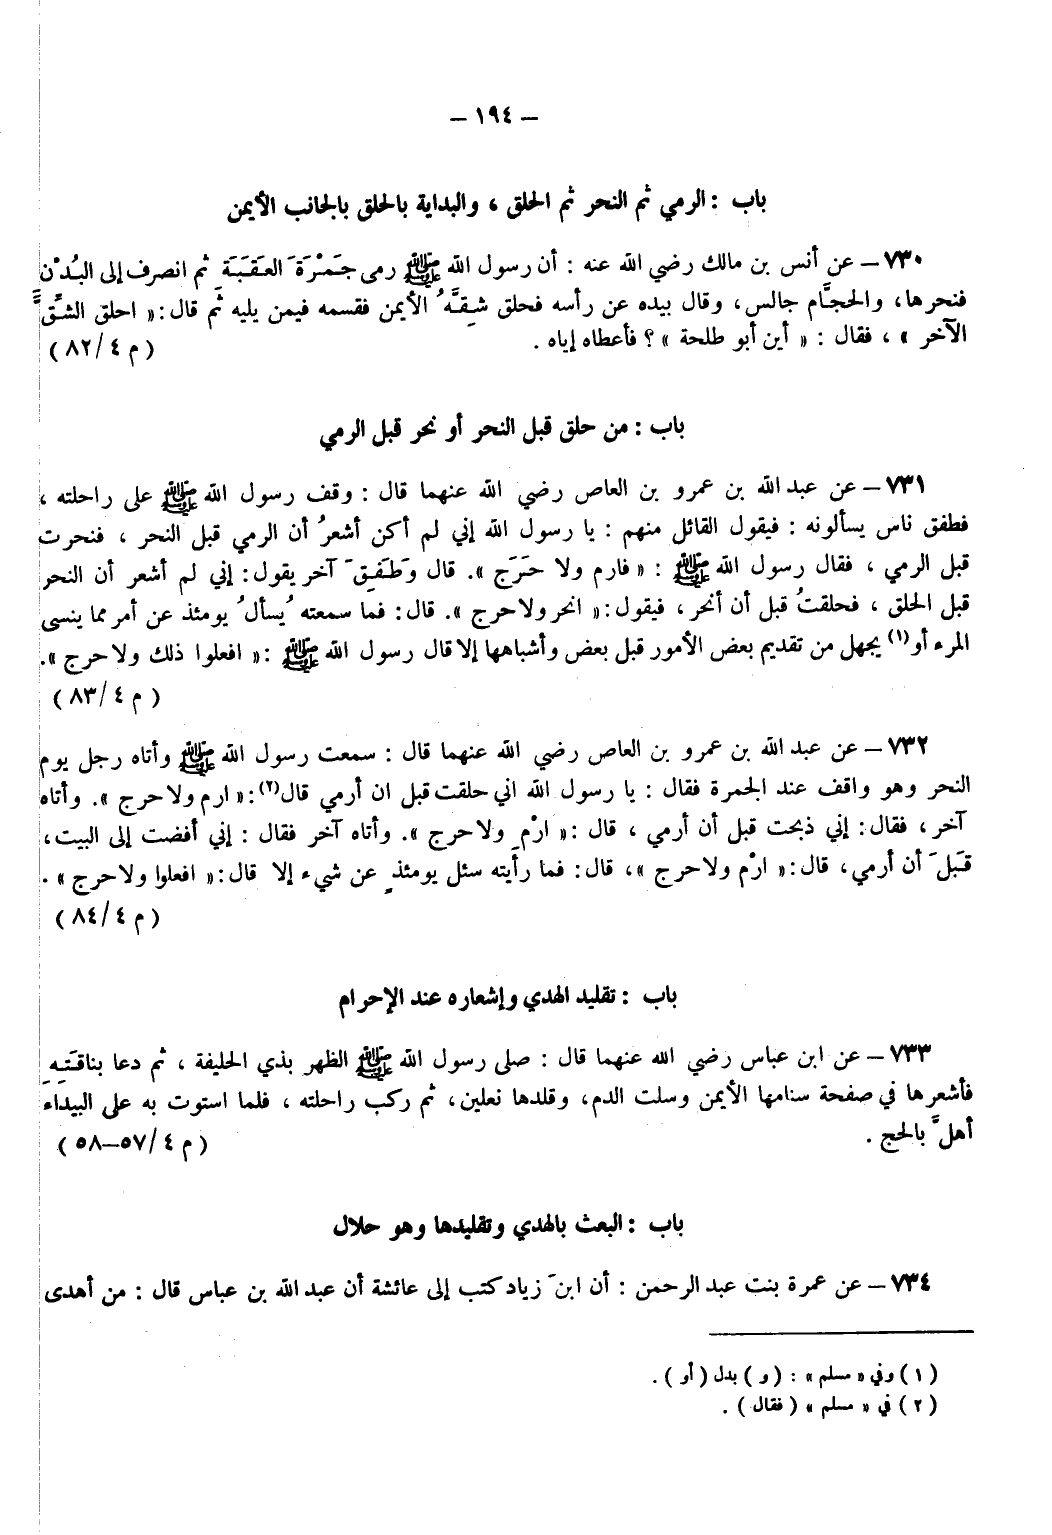 – ١٩٤ –
باب : الرمي ثم النحر ثم الحلق ، والبداية بالحلق بالجانب الأيمن
٧٣٠ – عن أنس بن مالك رضي الله عنه : أن رسول الله ﷺ رمى جَمْرَةَ العَقَبَةِ ثم انصرف إلى البُدْن
فنحرها، والحجَّام جالس، وقال بيده عن رأسه فحلق شِقَّهُ الأيمن فقسمه فيمن يليه ثم قال: « احلق الشقَّ
الآخر » ، فقال : « أين أبو طلحة » ؟ فأعطاه إياه .
( م ٤/٨٢ )
باب : من حلق قبل النحر أو نحر قبل الرمي
٧٣١ – عن عبد الله بن عمرو بن العاص رضي الله عنهما قال : وقف رسول الله ﷺ على راحلته ،
فطفق ناس يسألونه : فيقول القائل منهم : يا رسول الله إني لم أكن أشعرُ أن الرمي قبل النحر ، فنحرت
قبل الرمي ، فقال رسول الله ﷺ : « فارم ولا حَرَج ». قال وَطَفِقَ آخر يقول: إني لم أشعر أن النحر
قبل الحلق ، فحلقتُ قبل أن أنحر ، فيقول: « انحر ولا حرج ». قال: فما سمعته يُسألُ يومئذ عن أمر مما ينسى
المرء أو(١) يجهل من تقديم بعض الأمور قبل بعض وأشباهها إلا قال رسول الله ﷺ : « افعلوا ذلك ولا حرج ».
( م ٤/٨٣ )
٧٣٢ – عن عبد الله بن عمرو بن العاص رضي الله عنهما قال : سمعت رسول الله ﷺ وأتاه رجل يوم
النحر وهو واقف عند الجمرة فقال : يا رسول الله اني حلقت قبل ان أرمي قال(٢): « ارم ولا حرج ». وأتاه
آخر ، فقال: إني ذبحت قبل أن أرمي ، قال : « ارْمِ ولا حرج ». وأتاه آخر فقال : إني أفضت إلى البيت،
قَبلَ أن أرمي، قال: « ارْم ولا حرج »، قال: فما رأيته سئل يومئذٍ عن شيء إلا قال: « افعلوا ولا حرج » .
( م ٤/٨٤ )
باب : تقليد الهدي وإشعاره عند الإحرام
٧٣٣ – عن ابن عباس رضي الله عنهما قال : صلى رسول الله ﷺ الظهر بذي الحليفة ، ثم دعا بناقَتِهِ
فأشعرها في صفحة سنامها الأيمن وسلت الدم، وقلدها نعلين، ثم ركب راحلته ، فلما استوت به على البيداء
أهلَّ بالحج .
( م ٤/٥٧–٥٨ )
باب : البعث بالهدي وتقليدها وهو حلال
٧٣٤ – عن عمرة بنت عبد الرحمن : أن ابنَ زياد كتب إلى عائشة أن عبد الله بن عباس قال : من أهدى
( ١ ) وفي « مسلم » : ( و ) بدل ( أو ) .
( ٢ ) في « مسلم » ( فقال ) .